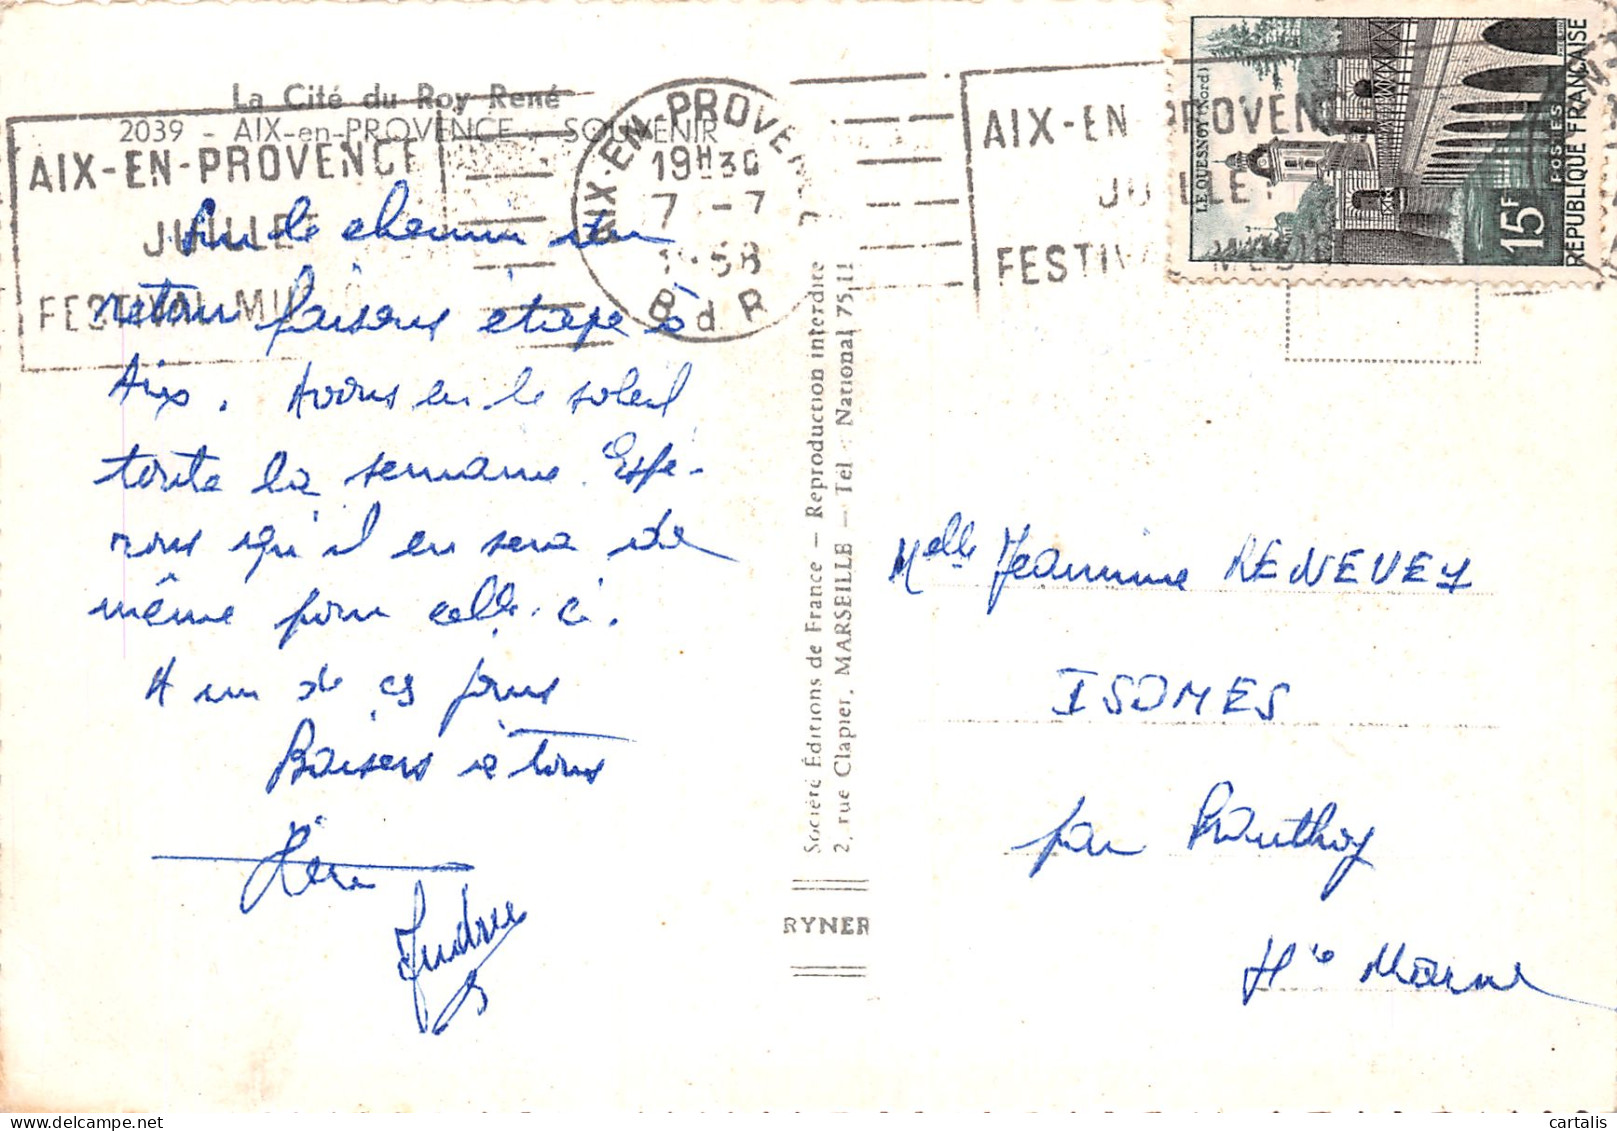 La Cité du Roy René
2039 - AIX-en-PROVENCE - SOUVENIR
AIX-EN-PROVENCE
JUILLET
FESTIVAL MUS
AIX-EN-PROVENCE
19H30
7 -7
1958
B d R
AIX-EN-PROVEN
JUILLET
FESTIVAL MUSI
LE QUESNOY (Nord)
15F
POSTES
REPUBLIQUE FRANÇAISE
Sur le chemin du
retour faisons étape à
Aix. Avons eu le soleil
toute la semaine. Espé-
rons qu'il en sera de
même pour celle-ci.
A un de ces jours
Baisers à tous
Andrée
Société Éditions de France — Reproduction interdite
2, rue Clapier, MARSEILLE — Tél : National 75.11
RYNER
Melle Jeannine RENEVEY
ISOMES
par Prauthoy
Hte Marne
cartalis